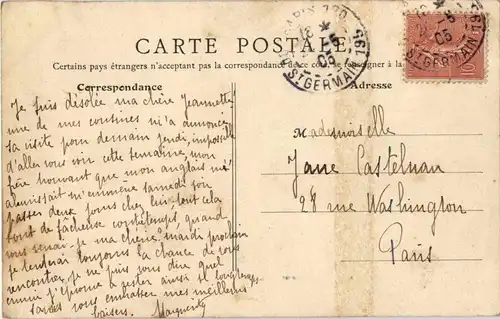 CARTE POSTALE
Certains pays étrangers n'acceptent pas la correspondance de ce côté, se renseigner à la
Correspondance
Adresse
Je suis désolée ma chère Jeannette
une de mes cousines m'a annoncé
sa visite pour demain jeudi, impossible
d'aller vous voir cette semaine, mon
père trouvant que mon anglais
m'emmène samedi soir
passer deux jours chez lui tout cela
tout de fâcheux contretemps, quand
vous verrai-je ma chérie, mardi prochain
je tenterai toujours la chance de vous
rencontrer, je ne puis vous dire quel
ennui j'éprouve à rester aussi longtemps
sans vous embrasser mes meilleurs
baisers. Marguerite
Mademoiselle
Jane Castelnau
28 rue Washington
Paris
ST GERMAIN
05
ST GERMAIN
05
10